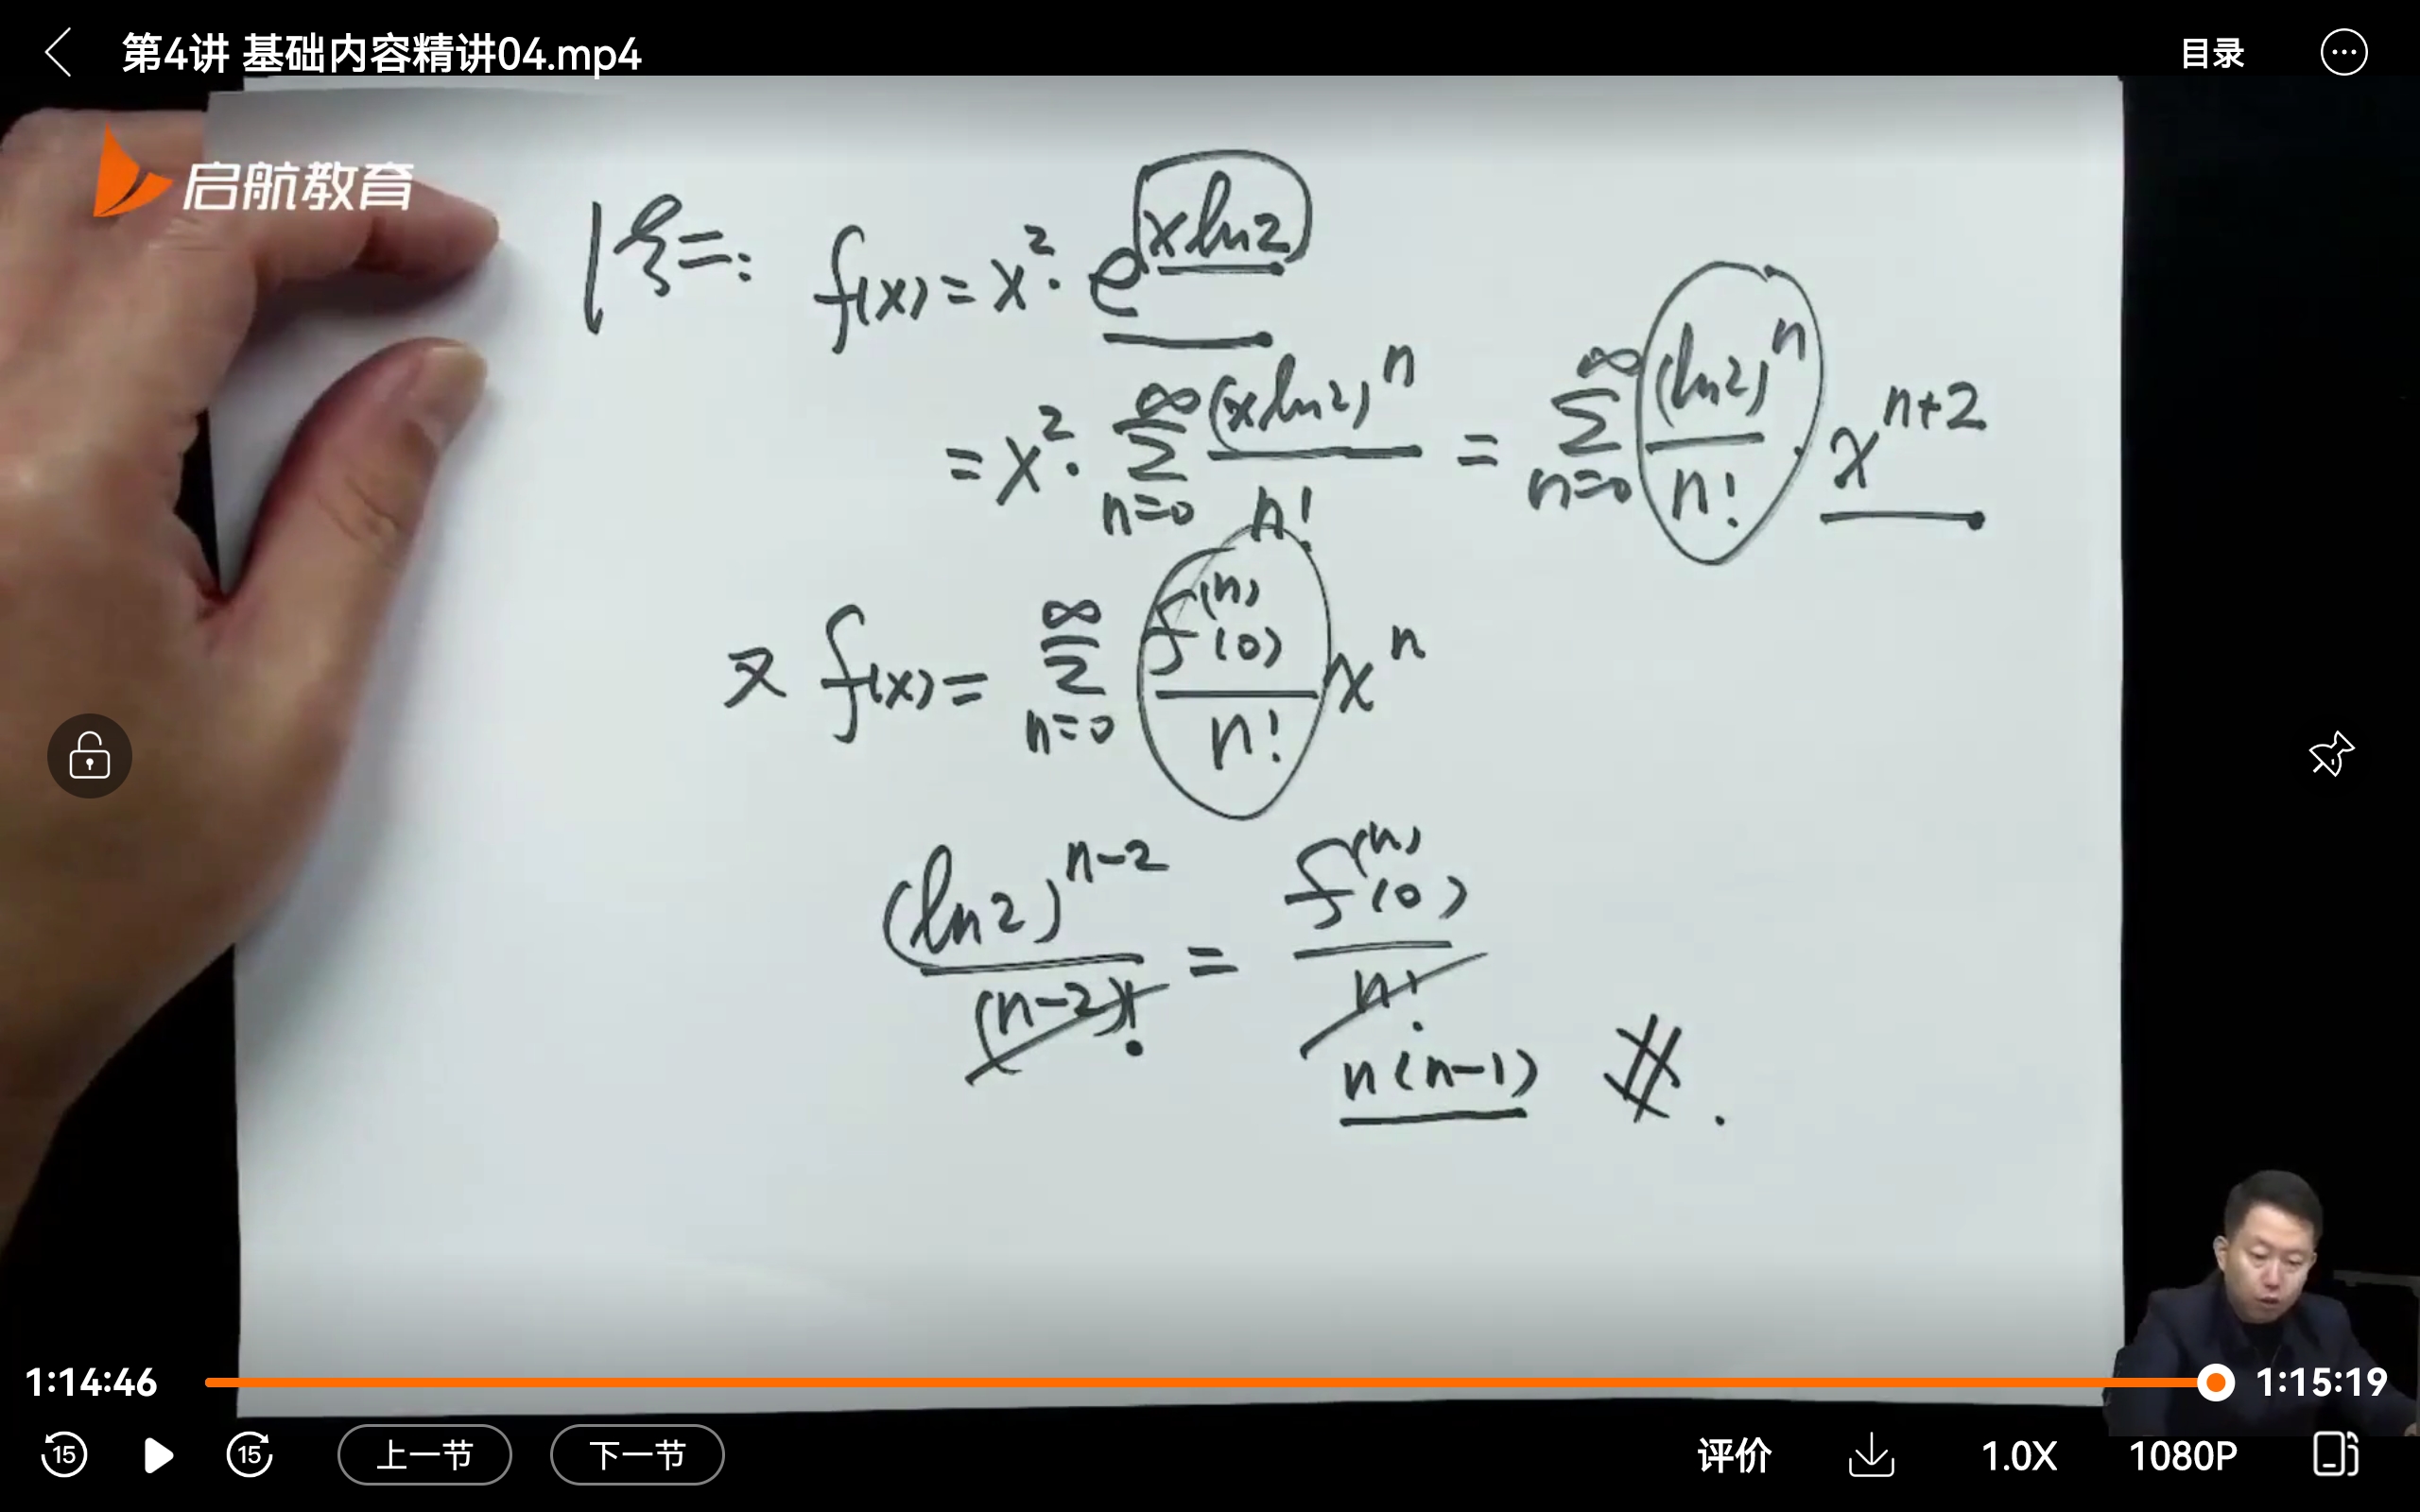 第4讲 基础内容精讲04.mp4
目录
启航教育
f(x)=x²·e^{x ln2}
=x²·∑_{n=0}^{∞} (x ln2)^n / n! = ∑_{n=0}^{∞} (ln2)^n / n! · x^{n+2}
又 f(x)=∑_{n=0}^{∞} f^{(n)}(0) / n! x^n
(ln2)^{n-2} / (n-2)! = f^{(n)}(0) / n!
n(n-1) #.
1:14:46
1:15:19
15
15
上一节
下一节
评价
1.0X
1080P